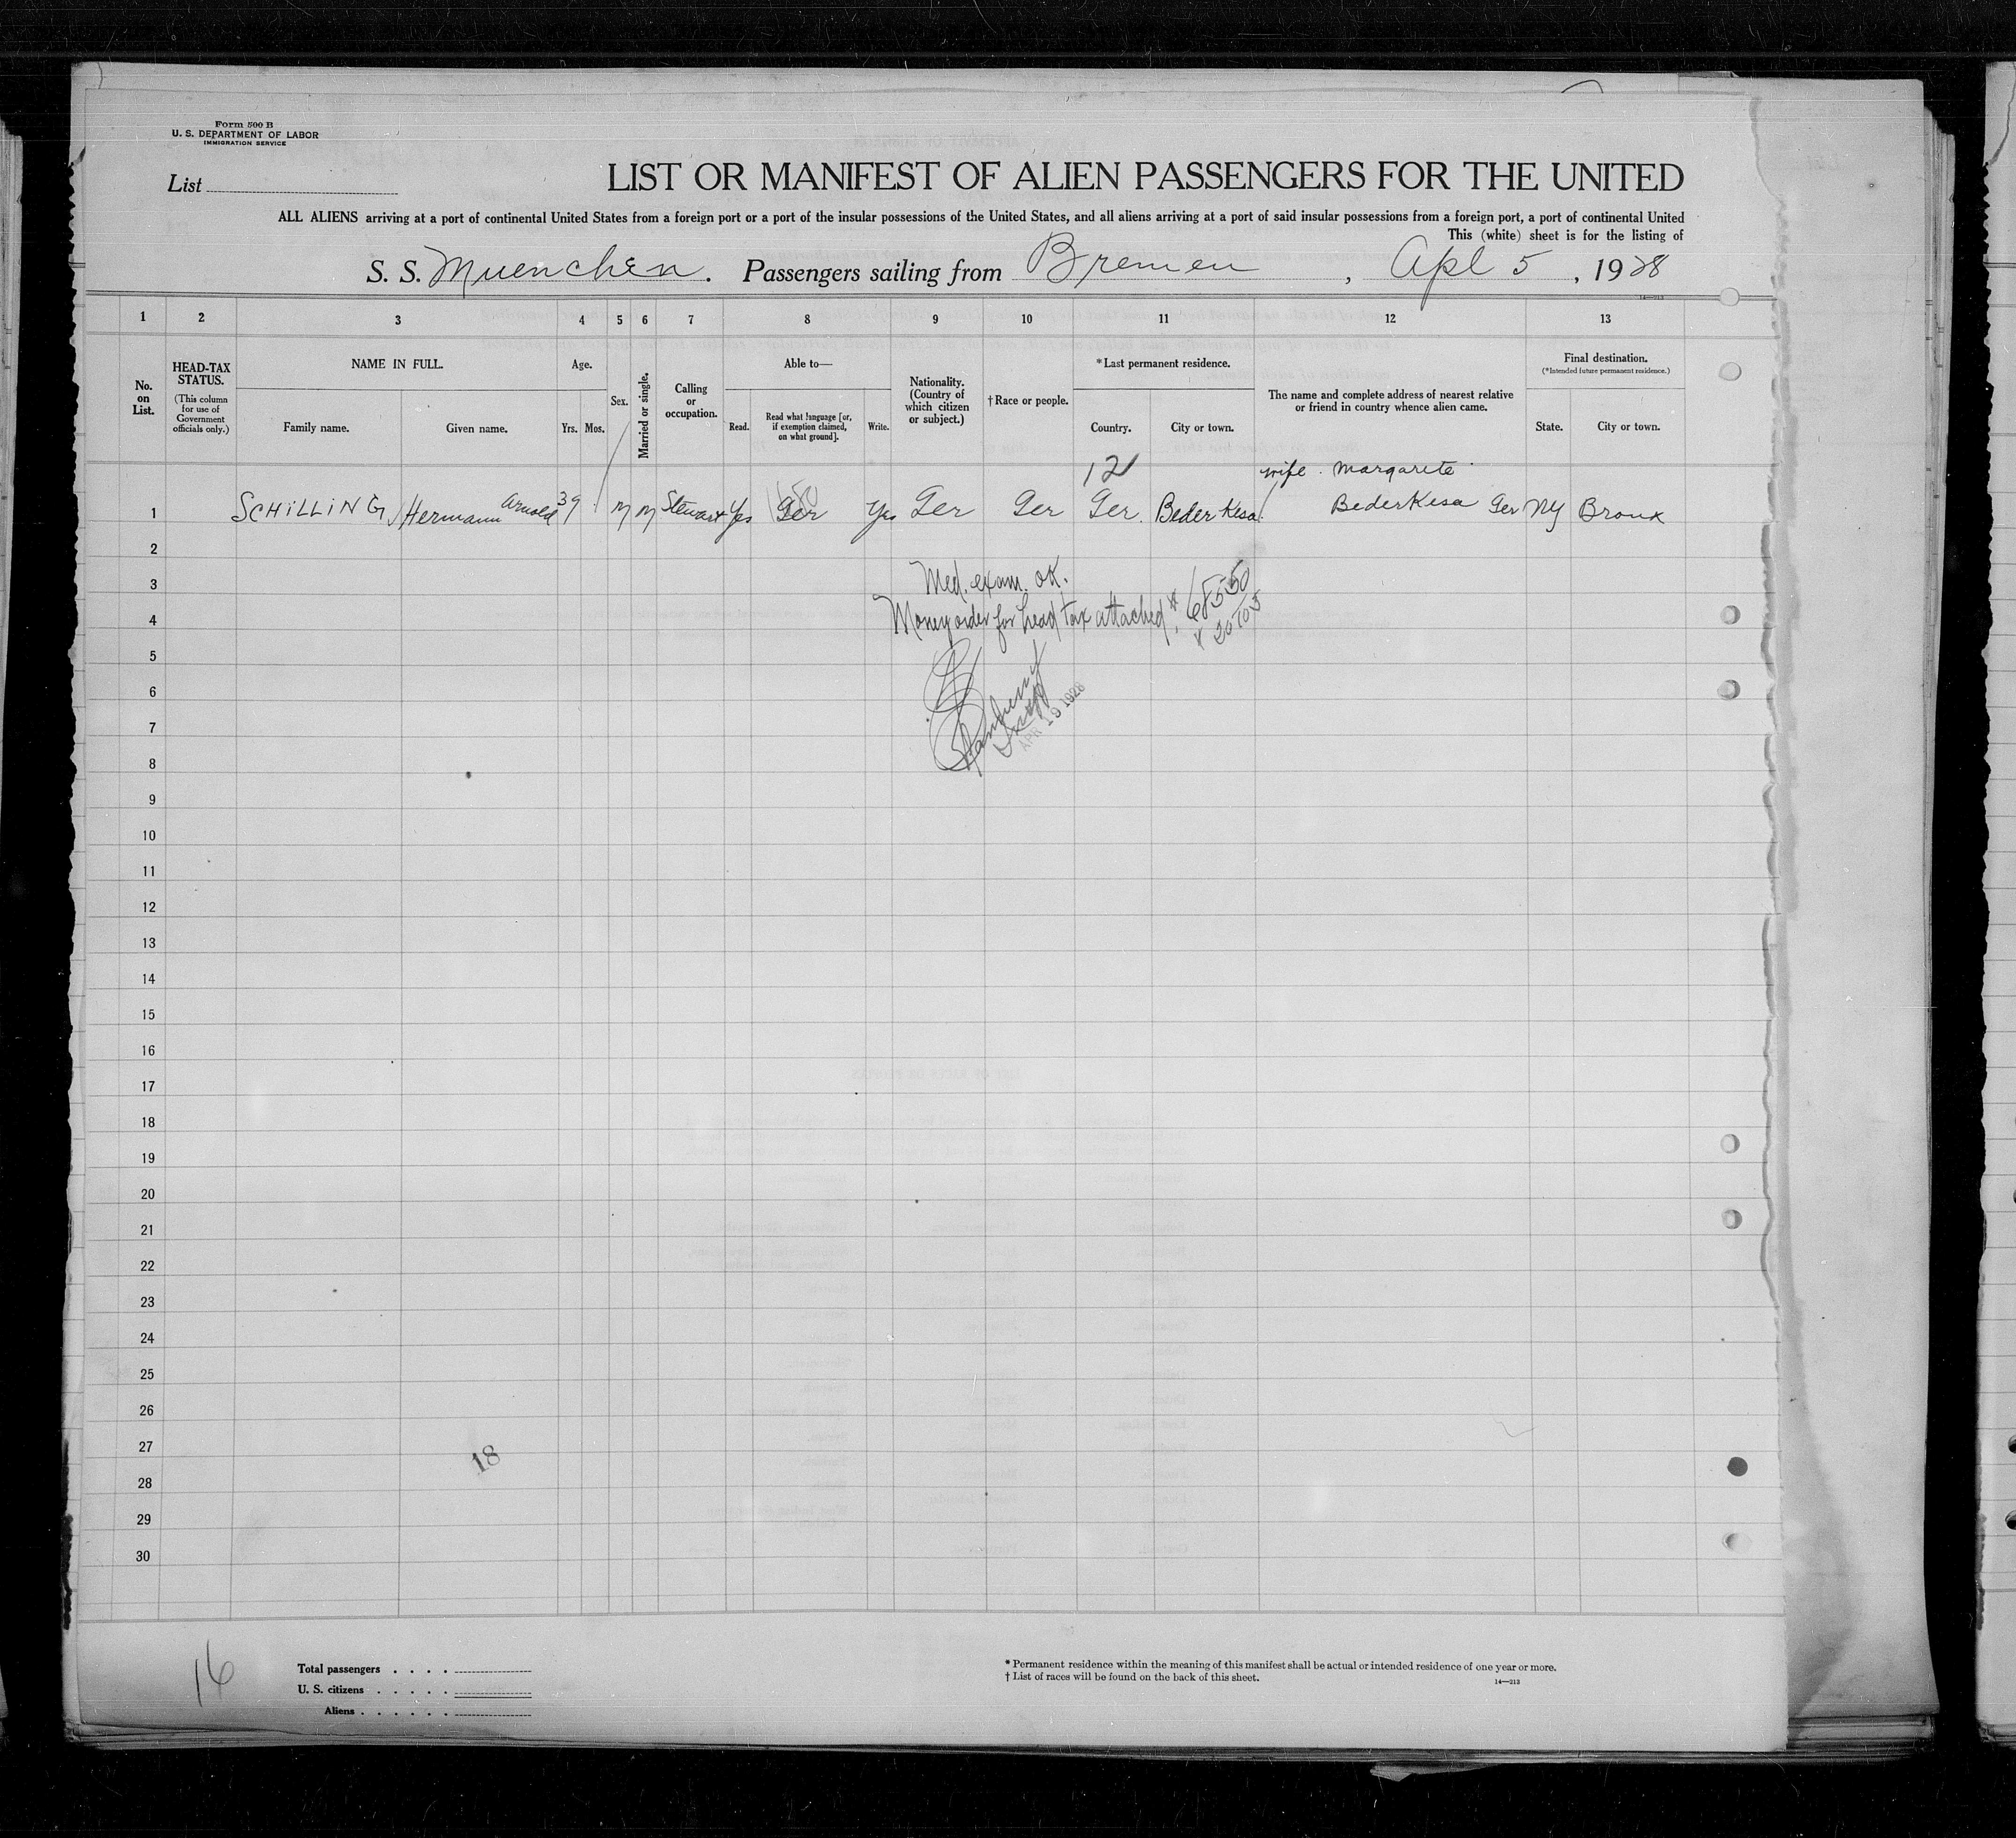 Form 500 B
U. S. DEPARTMENT OF LABOR
IMMIGRATION SERVICE
List
LIST OR MANIFEST OF ALIEN PASSENGERS FOR THE UNITED
ALL ALIENS arriving at a port of continental United States from a foreign port or a port of the insular possessions of the United States, and all aliens arriving at a port of said insular possessions from a foreign port, a port of continental United
This (white) sheet is for the listing of
S. S. Muenchen. Passengers sailing from Bremen, Apl 5, 1928
14—213
1 2 3 4 5 6 7 8 9 10 11 12 13
No. on List.
HEAD-TAX STATUS.
(This column for use of Government officials only.)
NAME IN FULL.
Family name. Given name.
Age.
Yrs. Mos.
Sex.
Married or single.
Calling or occupation.
Able to—
Read. Read what language [or, if exemption claimed, on what ground]. Write.
Nationality. (Country of which citizen or subject.)
† Race or people.
*Last permanent residence.
Country. City or town.
The name and complete address of nearest relative or friend in country whence alien came.
Final destination.
(*Intended future permanent residence.)
State. City or town.
12
wife. Margarete
1 SCHILLING Hermann Arnold 39 M M Stewart Yes Ger Yes Ger Ger Ger. BederKesa BederKesa Ger NY Bronx
2
3
Med. exam. ok.
4
Money order for head tax attached
5
6
7
APR 19 1928
8
9
10
11
12
13
14
15
16
17
18
19
20
21
22
23
24
25
26
27
18
28
29
30
16
Total passengers
U. S. citizens
Aliens
* Permanent residence within the meaning of this manifest shall be actual or intended residence of one year or more.
† List of races will be found on the back of this sheet.
14—213